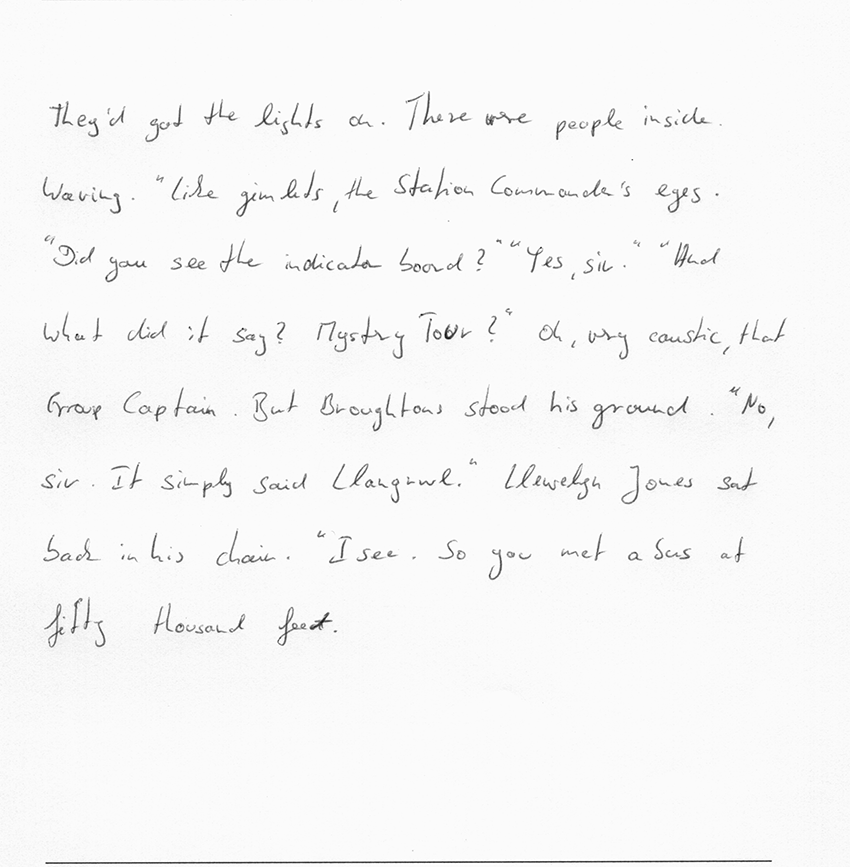 They'd got the lights on. There were people inside.
Waving. "Like gimlets, the Station Commander's eyes.
"Did you see the indicator board?" "Yes, sir." "And
what did it say? Mystry Tour?" Oh, very caustic, that
Group Captain. But Broughtons stood his ground. "No,
sir. It simply said Llangrwl." Llewelyn Jones sat
back in his chair. "I see. So you met a bus at
fifty thousand feet.